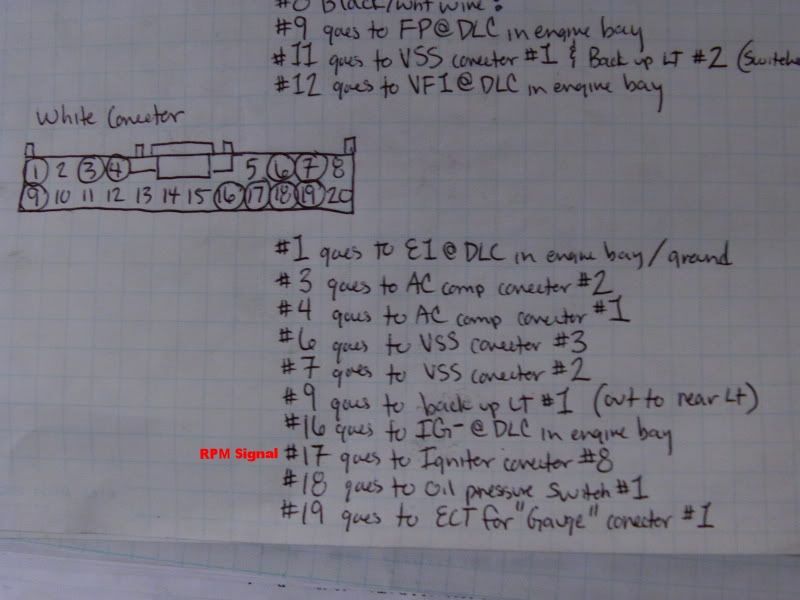 #8 Black/wht wire?
#9 goes to FP@DLC in engine bay
#11 goes to VSS conector #1 & Back up LT #2 (Switche
#12 goes to VF1@DLC in engine bay
White Conector
1 2 3 4 5 6 7 8
9 10 11 12 13 14 15 16 17 18 19 20
#1 goes to E1@DLC in engine bay/ground
#3 goes to AC comp conector #2
#4 goes to AC comp conector #1
#6 goes to VSS conector #3
#7 goes to VSS conector #2
#9 goes to back up LT #1 (out to rear Lt)
#16 goes to IG-@DLC in engine bay
RPM Signal #17 goes to Igniter conector #8
#18 goes to Oil pressure Switch #1
#19 goes to ECT for "Gauge" conector #1